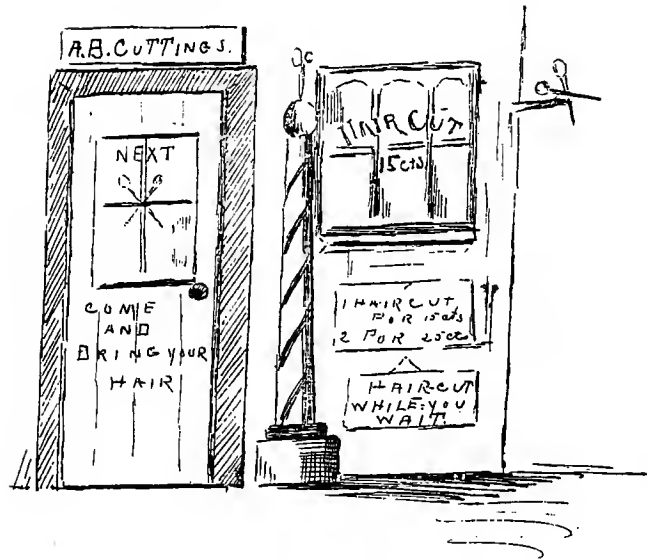 A.B. CUTTINGS.
NEXT
COME
AND
BRING YOUR
HAIR
HAIR CUT
15cts
1 HAIR CUT
FOR 15cts
2 FOR 25cts
HAIR-CUT
WHILE-YOU
WAIT.